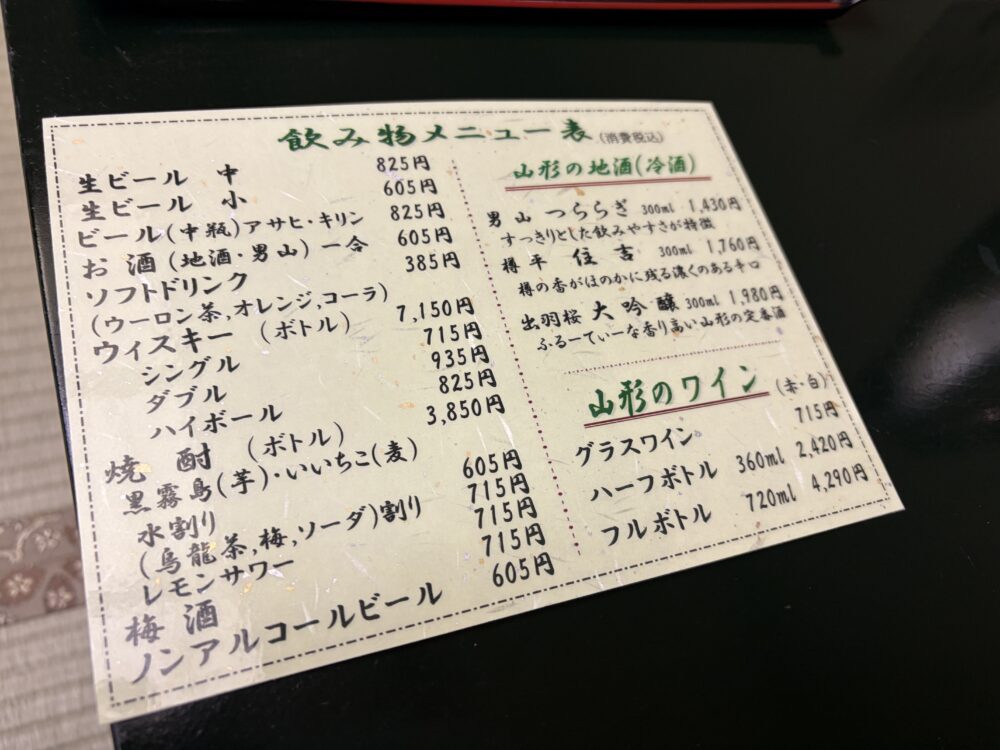 飲み物メニュー表 (消費税込)
生ビール 中 825円
生ビール 小 605円
ビール(中瓶)アサヒ・キリン 825円
お酒(地酒・男山)一合 605円
ソフトドリンク 385円
(ウーロン茶,オレンジ,コーラ)
ウィスキー (ボトル) 7,150円
シングル 715円
ダブル 935円
ハイボール 825円
焼酎 (ボトル) 3,850円
黒霧島(芋)・いいちこ(麦)
水割り 605円
(烏龍茶,梅,ソーダ)割り 715円
レモンサワー 715円
梅酒 715円
ノンアルコールビール 605円
山形の地酒(冷酒)
男山 つららぎ 300ml 1,430円
すっきりとした飲みやすさが特徴
樽平 住吉 300ml 1,760円
樽の香がほのかに残る濃くのある辛口
出羽桜 大吟醸 300ml 1,980円
ふるーてぃーな香り高い山形の定番酒
山形のワイン (赤・白)
グラスワイン 715円
ハーフボトル 360ml 2,420円
フルボトル 720ml 4,290円